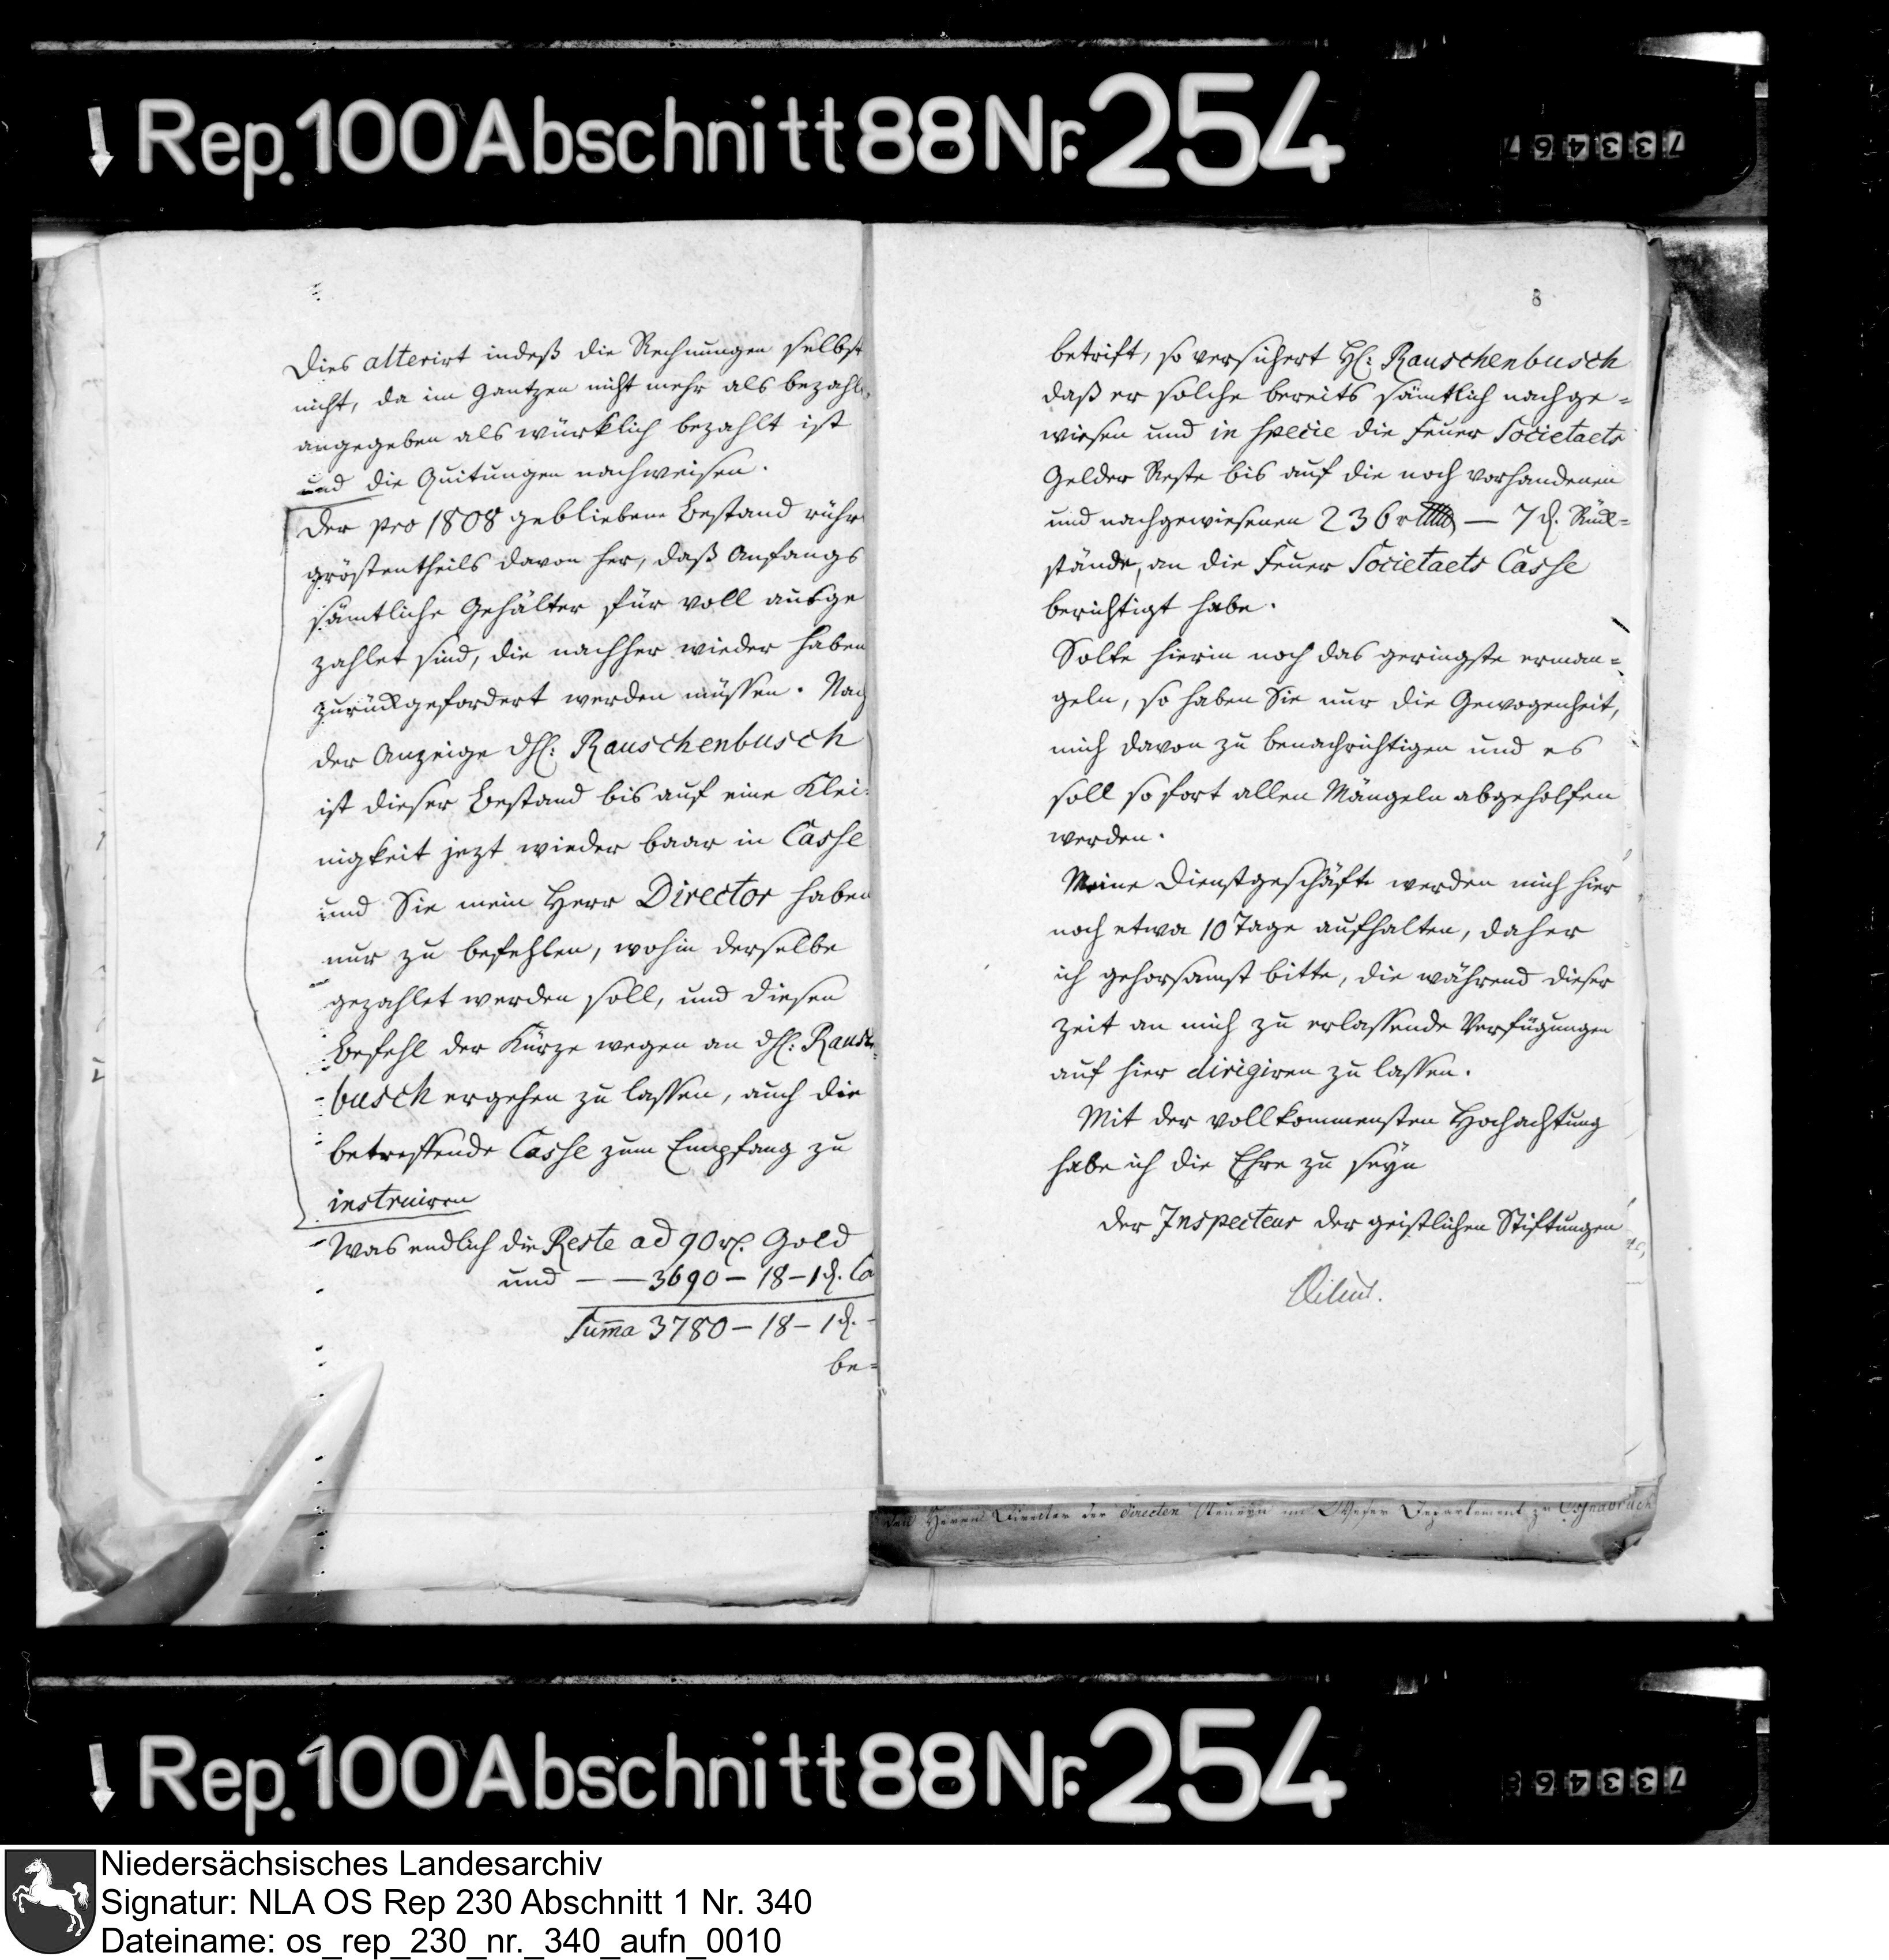 Rep. 100 Abschnitt 88 Nr. 254
733467
Dies alterirt indeß die Rechnungen selbst
nicht, da im Gantzen nicht mehr als bezahlt,
angegeben als würklich bezahlt ist
und die Quitungen nachweisen.
Der pro 1808 gebliebene Bestand rühr
gröstentheils davon her, daß Anfangs
sämtliche Gehälter für voll ausge
zahlet sind, die nachher wieder haben
zurückgefordert werden müssen. Nach
der Anzeige dH: Rauschenbusch
ist dieser Bestand bis auf eine Klei:
nigkeit jezt wieder baar in Casse
und Sie mein Herr Director haben
nur zu befehlen, wohin derselbe
gezahlet werden soll, und diesen
Befehl der Kürze wegen an dH: Rausch
busch ergehen zu lassen, auch die
betreffende Casse zum Empfang zu
instruiren
Was endlich die Reste ad 90 r. Gold
und — — 3690 – 18 – 1 d. Co
Summa 3780 – 18 – 1 d. -
be=
8
betrift, so versichert H: Rauschenbusch
daß er solche bereits sämtlich nachge=
wiesen und in specie die Feuer Societaets
Gelder Reste bis auf die noch vorhandenen
und nachgewiesenen 236 r — 7 d. Rück=
stände, an die Feuer Societaets Casse
berichtigt habe.
Solte hierin noch das geringste erman=
geln, so haben Sie nur die Gewogenheit,
mich davon zu benachrichtigen und es
soll sofort allen Mängeln abgeholfen
werden.
Meine Dienstgeschäfte werden mich hier
noch etwa 10 Tage aufhalten, daher
ich gehorsamst bitte, die während dieser
Zeit an mich zu erlassende Verfügungen
auf hier dirigiren zu lassen.
Mit der vollkommensten Hochachtung
habe ich die Ehre zu seyn
der Inspecteur der geistlichen Stiftungen
den Herrn Director der directen Steuern im Weser Departement zu Osnabrück
Rep. 100 Abschnitt 88 Nr. 254
733468
Niedersächsisches Landesarchiv
Signatur: NLA OS Rep 230 Abschnitt 1 Nr. 340
Dateiname: os_rep_230_nr._340_aufn_0010